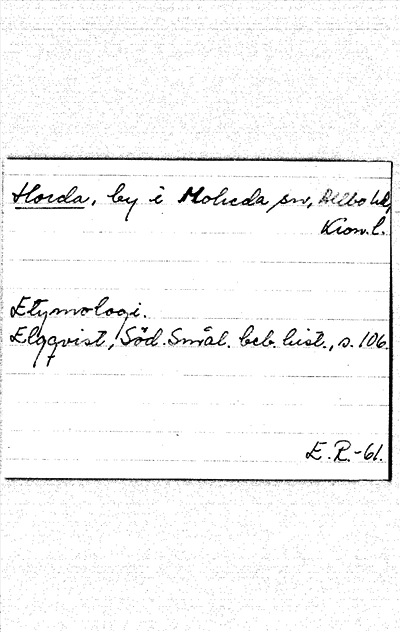 Horda, by i Moheda sn, Allbo hd,
Kron.l.
Etymologi.
Elgqvist, Söd. Smål. beb. hist., s. 106.
E. R.-61.